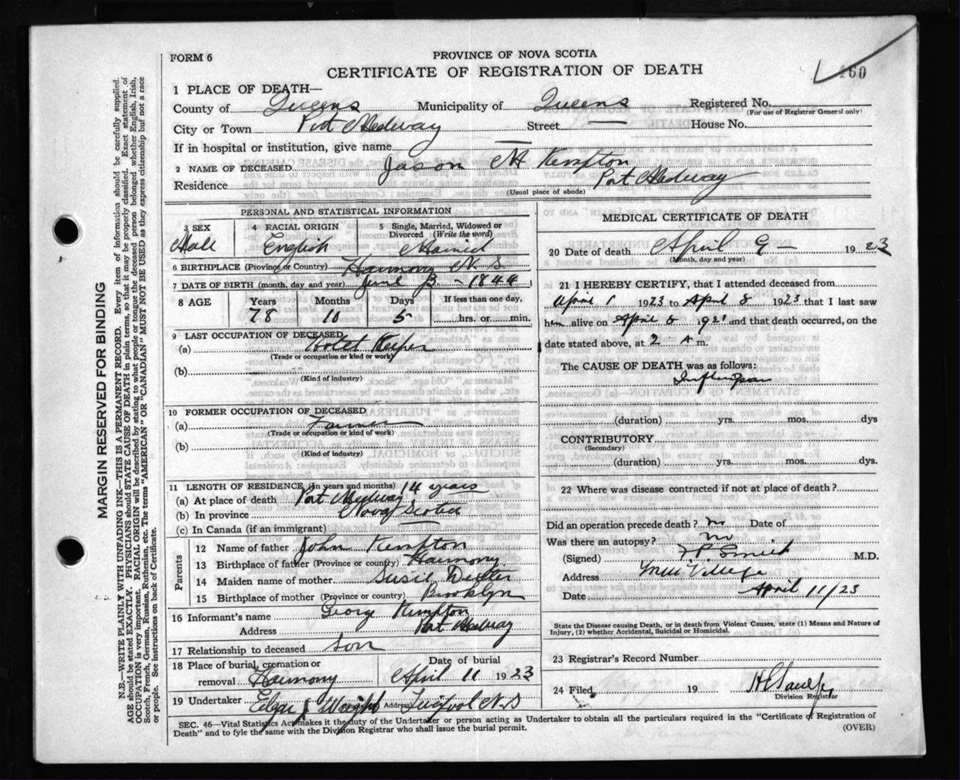 FORM 6
PROVINCE OF NOVA SCOTIA
CERTIFICATE OF REGISTRATION OF DEATH
460
1 PLACE OF DEATH—
County of Queens Municipality of Queens Registered No.
(For use of Registrar General only.)
City or Town Port Medway Street — House No.
If in hospital or institution, give name —
2 NAME OF DECEASED Jason H Kempton
Residence Port Medway
(Usual place of abode)
PERSONAL AND STATISTICAL INFORMATION
3 SEX 4 RACIAL ORIGIN 5 Single, Married, Widowed or Divorced (Write the word)
Male English Maried
6 BIRTHPLACE (Province or Country) Harmony N.S.
7 DATE OF BIRTH (month, day and year) June 3 - 1844
8 AGE Years Months Days If less than one day,
78 10 5 hrs. or min.
9 LAST OCCUPATION OF DECEASED
(a) Hotel Keeper
(Trade or occupation or kind or work)
(b)
(Kind of industry)
10 FORMER OCCUPATION OF DECEASED
(a) Farmer
(Trade or occupation or kind of work)
(b)
(Kind of industry)
11 LENGTH OF RESIDENCE (in years and months) 14 years
(a) At place of death Port Medway
(b) In province Nova Scotia
(c) In Canada (if an immigrant)
Parents
12 Name of father John Kempton
13 Birthplace of father (Province or country) Harmony
14 Maiden name of mother Susie Dexter
15 Birthplace of mother (Province or country) Brooklyn
16 Informant's name Georg Kempton
Address Port Medway
17 Relationship to deceased Son
18 Place of burial, cremation or removal Harmony Date of burial April 11 1923
19 Undertaker Edgar J Wright Address Liverpool N.S
MEDICAL CERTIFICATE OF DEATH
20 Date of death April 9 — 1923
(Month, day and year)
21 I HEREBY CERTIFY, that I attended deceased from
April 1 1923 to April 8 1923 that I last saw
him alive on April 8 1921 and that death occurred, on the
date stated above, at 2 A m.
The CAUSE OF DEATH was as follows:
Influenza
(duration) yrs. mos. dys
CONTRIBUTORY
(Secondary)
(duration) yrs. mos. dys.
22 Where was disease contracted if not at place of death?
Did an operation precede death? no Date of
Was there an autopsy? no
(Signed) M.D.
Address Mill Village
Date April 11/23
State the Disease causing Death, or in death from Violent Causes, state (1) Means and Nature of Injury, (2) whether Accidental, Suicidal or Homicidal.
23 Registrar's Record Number
24 Filed 19
Division Registrar
SEC. 46—Vital Statistics Act makes it the duty of the Undertaker or person acting as Undertaker to obtain all the particulars required in the "Certificate of Registration of
Death" and to fyle the same with the Division Registrar who shall issue the burial permit. (OVER)
MARGIN RESERVED FOR BINDING
N.B.—WRITE PLAINLY WITH UNFADING INK—THIS IS A PERMANENT RECORD. Every item of information should be carefully supplied.
AGE should be stated EXACTLY. PHYSICIANS should STATE CAUSE OF DEATH in plain terms, so that it may be properly classified. Exact statement of
OCCUPATION is very important. RACIAL ORIGIN will be described by stating to what people or tongue the deceased person belonged whether English, Irish,
Scotch, French, German, Russian, Ruthenian, etc. The terms "AMERICAN" OR "CANADIAN" MUST NOT BE USED as they express citizenship but not a race
or people. See instructions on back of Certificate.